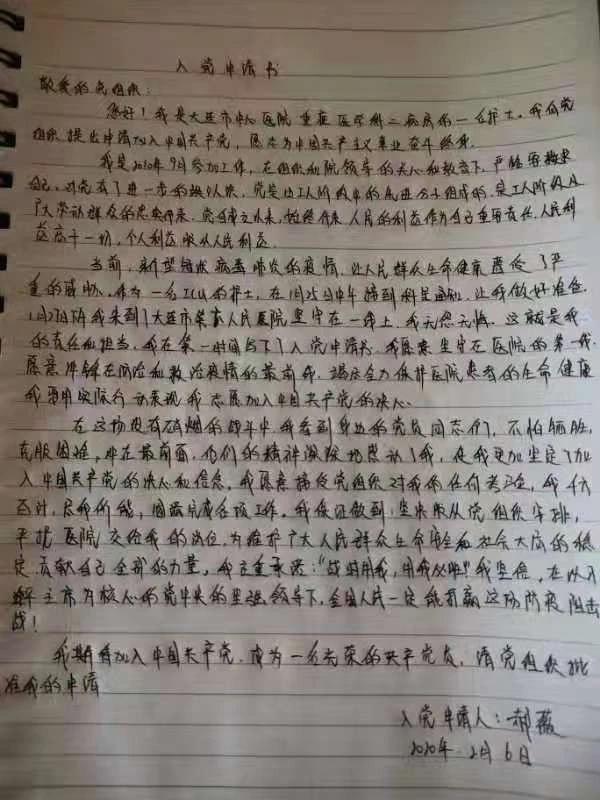 入党申请书
敬爱的党组织:
您好!我是大连市中心医院重症医学科二病房的一名护士。我向党
组织提出申请加入中国共产党,愿意为中国共产主义事业奋斗终身。
我是2010年9月参加工作,在组织和院领导的关心和教育下,严格要求
自己,对党有了进一步的认识,党是由工人阶级中的先进分子组成的,是工人阶级及
广大劳动群众的忠实代表。党自成立以来,始终代表人民的利益作为自己重要责任,人民利
益高于一切,个人利益服从人民利益。
当前,新型冠状病毒肺炎的疫情,让人民群众生命健康遭受了严
重的威胁。作为一名ICU的护士,在1月25日中午接到科里通知,让我做好准备,
1月27日我来到了大连市第六人民医院坚守在一线上,我无怨无悔。这就是我
的责任和担当,我在第一时间写下了入党申请书。我愿意坚守在医院的第一线,
愿意冲锋在防治和救治疫情的最前线,竭尽全力保护医院患者的生命健康
我要用实际行动表现我志愿加入中国共产党的决心。
在这场没有硝烟的战斗中我看到身边的党员同志们,不怕牺牲,
克服困难,冲在最前面,他们的精神深深地感动了我,使我更加坚定了加
入中国共产党的决心和信念。我愿意接受党组织对我的任何考验,我千方
百计,尽我所能,圆满完成各项工作。我保证做到:坚决服从党组织安排,
平抚医院交给我的岗位,为维护广大人民群众生命安全和社会大局的稳
定贡献自己全部的力量。我郑重承诺:"战时用我,用我必胜"我坚信,在以习
主席为核心的党中央的坚强领导下,全国人民一定能打赢这场防疫阻击
战!
我期待加入中国共产党,成为一名光荣的共产党员,请党组织批
准我的申请
入党申请人:郝薇
2020年2月6日